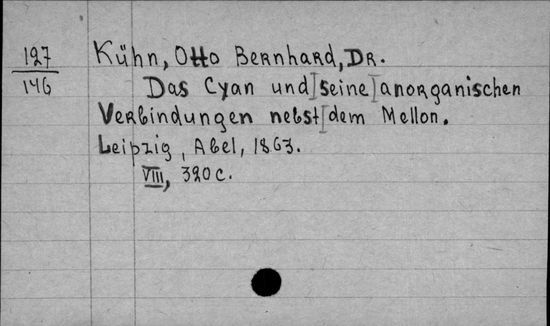 127
146
Kühn, Otto Bernhard, Dr.
Das Cyan und seine anorganischen
Verbindungen nebst dem Mellon.
Leipzig, Abel, 1863.
VIII, 320 c.